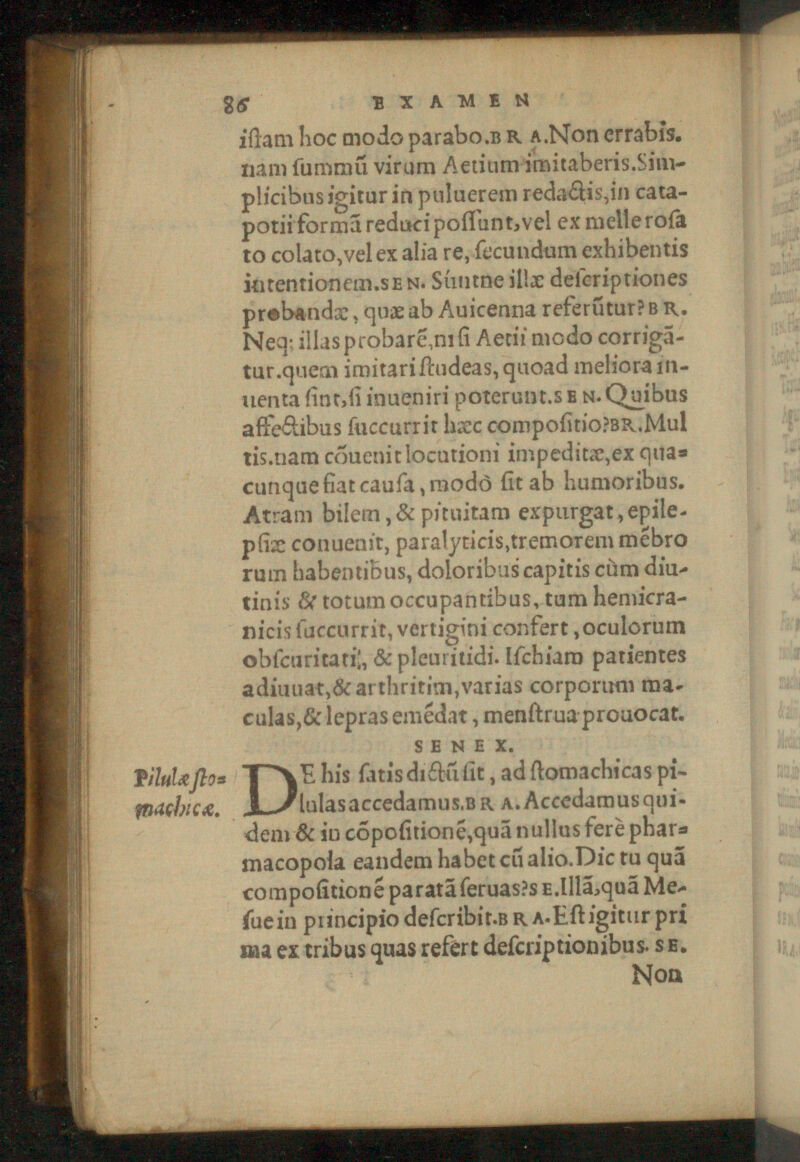 86 EXAMEN
iſtam hoc modo parabo.BRA.Non errabis.
nam ſummũ virum Aetium imitaberis.Sim-
plicibus igitur in puluerem redactis,in cata-
potii formã reduci poſſunt,vel ex melle roſa
to colato,vel ex alia re, ſecundum exhibentis
intentionem.SEN. Suntne illæ deſcriptiones
probandæ, quæ ab Auicenna referũtur?BR.
Neq; illas probarẽ,niſi Aetii modo corrigã-
tur.quem imitari ſtudeas, quoad meliora in-
uenta ſint,ſi inueniri poterunt.SEN. Quibus
affectibus ſuccurrit hæc compoſitio?BR.Mul
tis.nam cõuenit locutioni impeditæ,ex qua=
cunque fiat cauſa, modò ſit ab humoribus.
Atram bilem, & pituitam expurgat, epile-
pſiæ conuenit, paralyticis,tremorem mẽbro
rum habentibus, doloribus capitis cùm diu-
tinis & totum occupantibus, tum hemicra-
nicis ſuccurrit, vertigini confert, oculorum
obſcuritati, & pleuritidi. Iſchiam patientes
adiuuat,& arthritim,varias corporum ma-
culas,& lepras emẽdat, menſtrua prouocat.
SENEX.
Pilulæ ſto=
machicæ.
DE his ſatis dictũ ſit, ad ſtomachicas pi-
lulas accedamus.BRA. Accedamus qui-
dem & in cõpoſitionẽ,quã nullus ferè phar=
macopola eandem habet cũ alio.Dic tu quã
compoſitionẽ paratã ſeruas?SE.Illã,quã Me-
ſue in principio deſcribit.BRA.Eſt igitur pri
ma ex tribus quas refert deſcriptionibus. SE.
Non